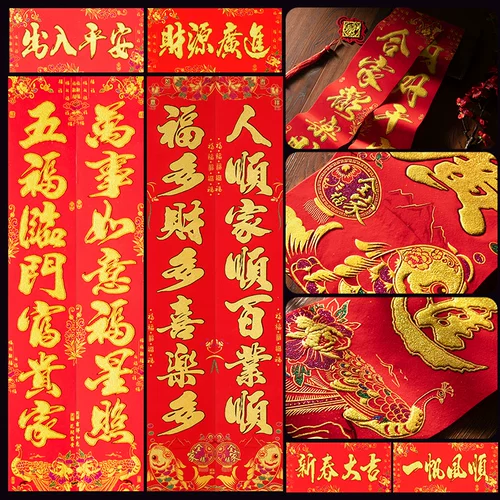 出入平安
財源廣進
萬事如意福星照
五福臨門富貴家
人順家順百業順
福多財多喜樂多
合家歡
新春大吉
一帆風順